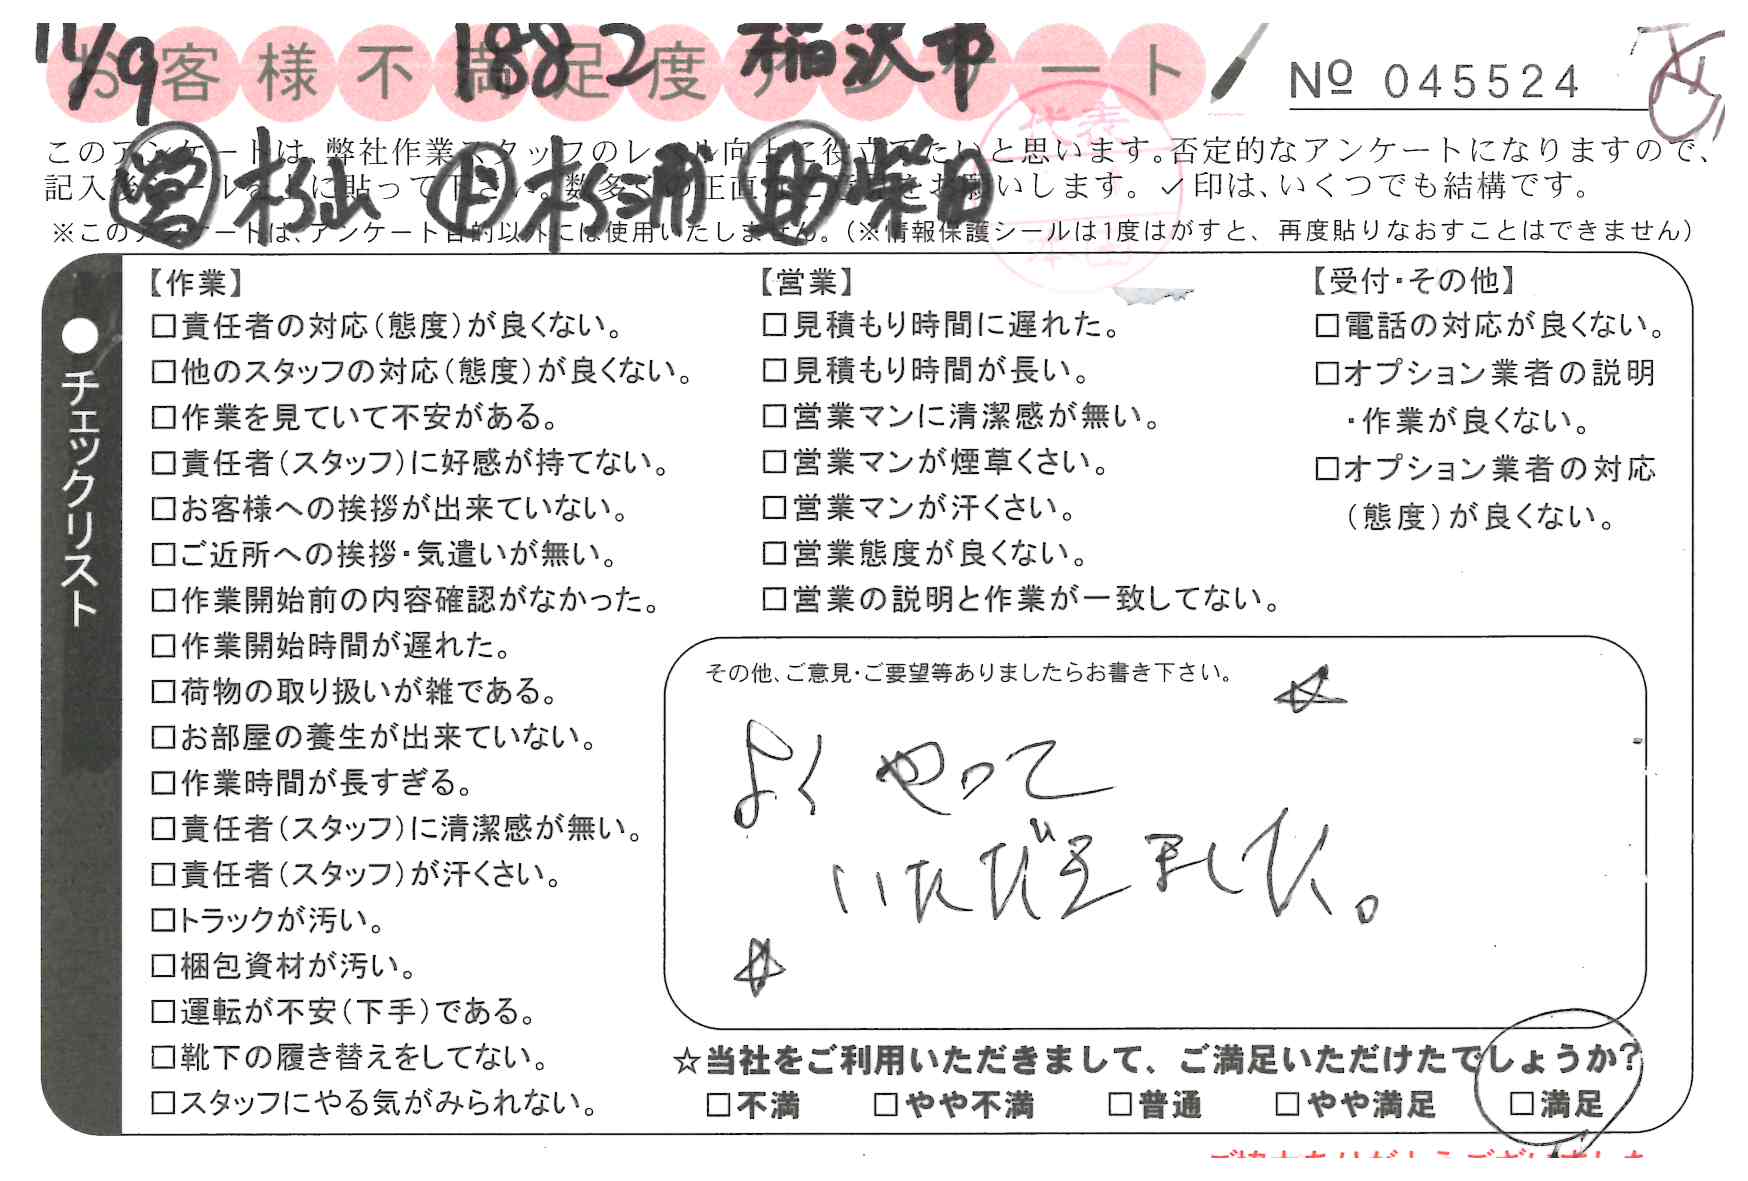 11/9 1882 稲沢市
お客様不満足度アンケート
Nº 045524
このアンケートは、弊社作業スタッフのレベル向上に役立てたいと思います。否定的なアンケートになりますので、
記入後シールを上に貼って下さい。数多くの正直なご意見をお願いします。✓印は、いくつでも結構です。
営 杉山 杉浦 助 柴田
※このアンケートは、アンケート目的以外には使用いたしません。（※情報保護シールは1度はがすと、再度貼りなおすことはできません）
代表
●チェックリスト
【作業】
□責任者の対応（態度）が良くない。
□他のスタッフの対応（態度）が良くない。
□作業を見ていて不安がある。
□責任者（スタッフ）に好感が持てない。
□お客様への挨拶が出来ていない。
□ご近所への挨拶・気遣いが無い。
□作業開始前の内容確認がなかった。
□作業開始時間が遅れた。
□荷物の取り扱いが雑である。
□お部屋の養生が出来ていない。
□作業時間が長すぎる。
□責任者（スタッフ）に清潔感が無い。
□責任者（スタッフ）が汗くさい。
□トラックが汚い。
□梱包資材が汚い。
□運転が不安（下手）である。
□靴下の履き替えをしてない。
□スタッフにやる気がみられない。
【営業】
□見積もり時間に遅れた。
□見積もり時間が長い。
□営業マンに清潔感が無い。
□営業マンが煙草くさい。
□営業マンが汗くさい。
□営業態度が良くない。
□営業の説明と作業が一致してない。
【受付・その他】
□電話の対応が良くない。
□オプション業者の説明
・作業が良くない。
□オプション業者の対応
（態度）が良くない。
その他、ご意見・ご要望等ありましたらお書き下さい。
☆
よくやって
いただきました。
☆
☆当社をご利用いただきまして、ご満足いただけたでしょうか？
□不満 □やや不満 □普通 □やや満足 □満足
ご協力ありがとうございました